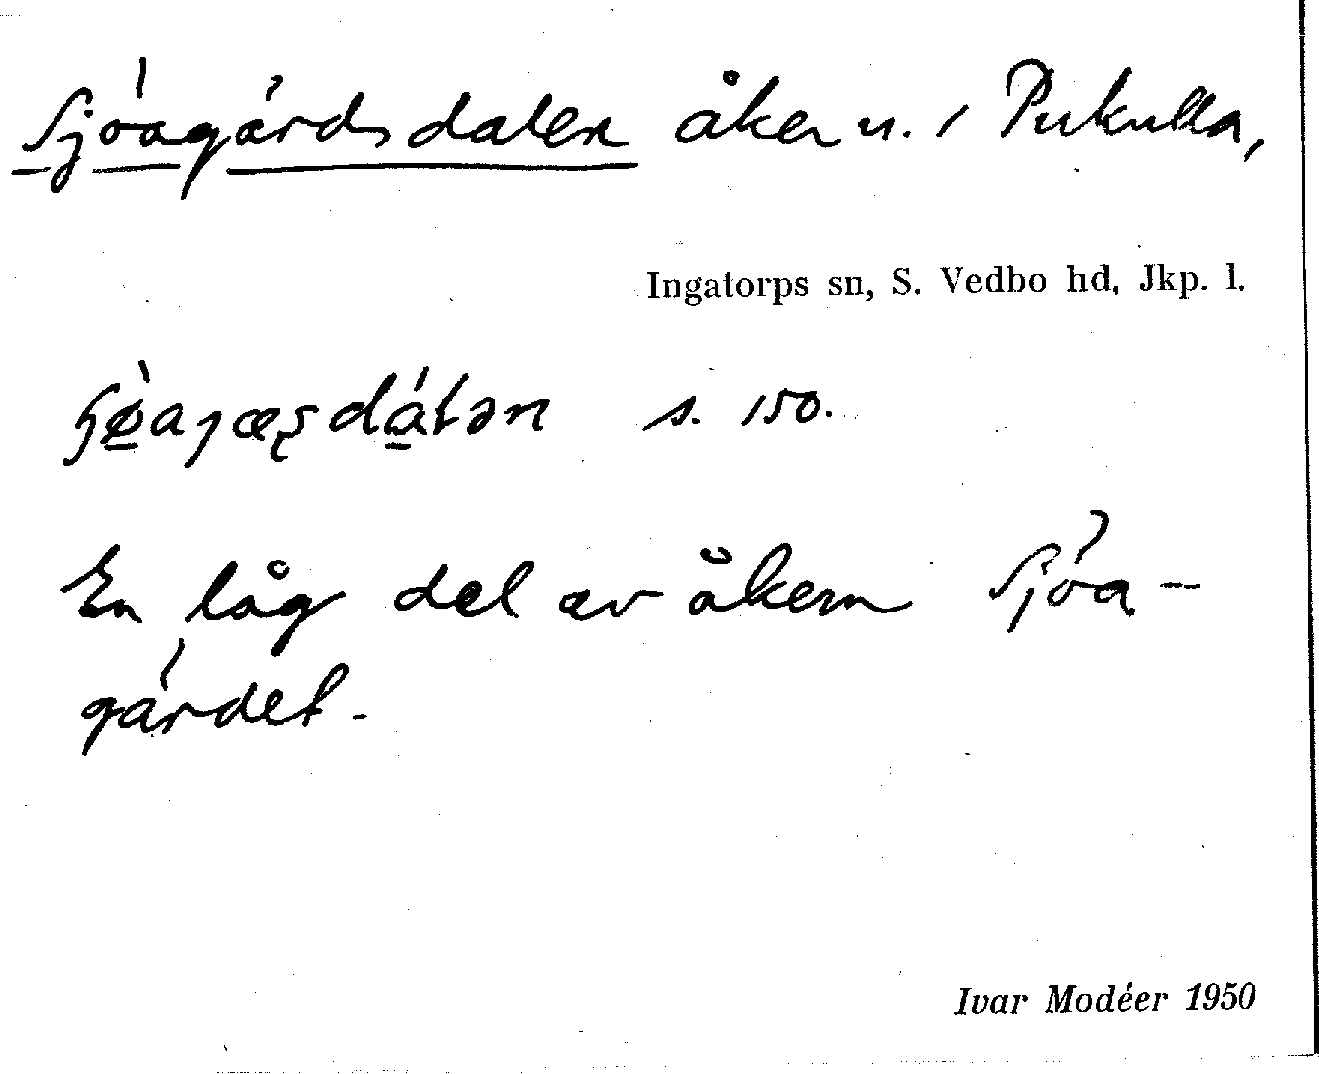 Sjöagärdsdalen åker u. / Pukulla,
Ingatorps sn, S. Vedbo hd, Jkp. l.
s. 150.
En låg del av åkern Sjöa-
gärdet.
Ivar Modéer 1950